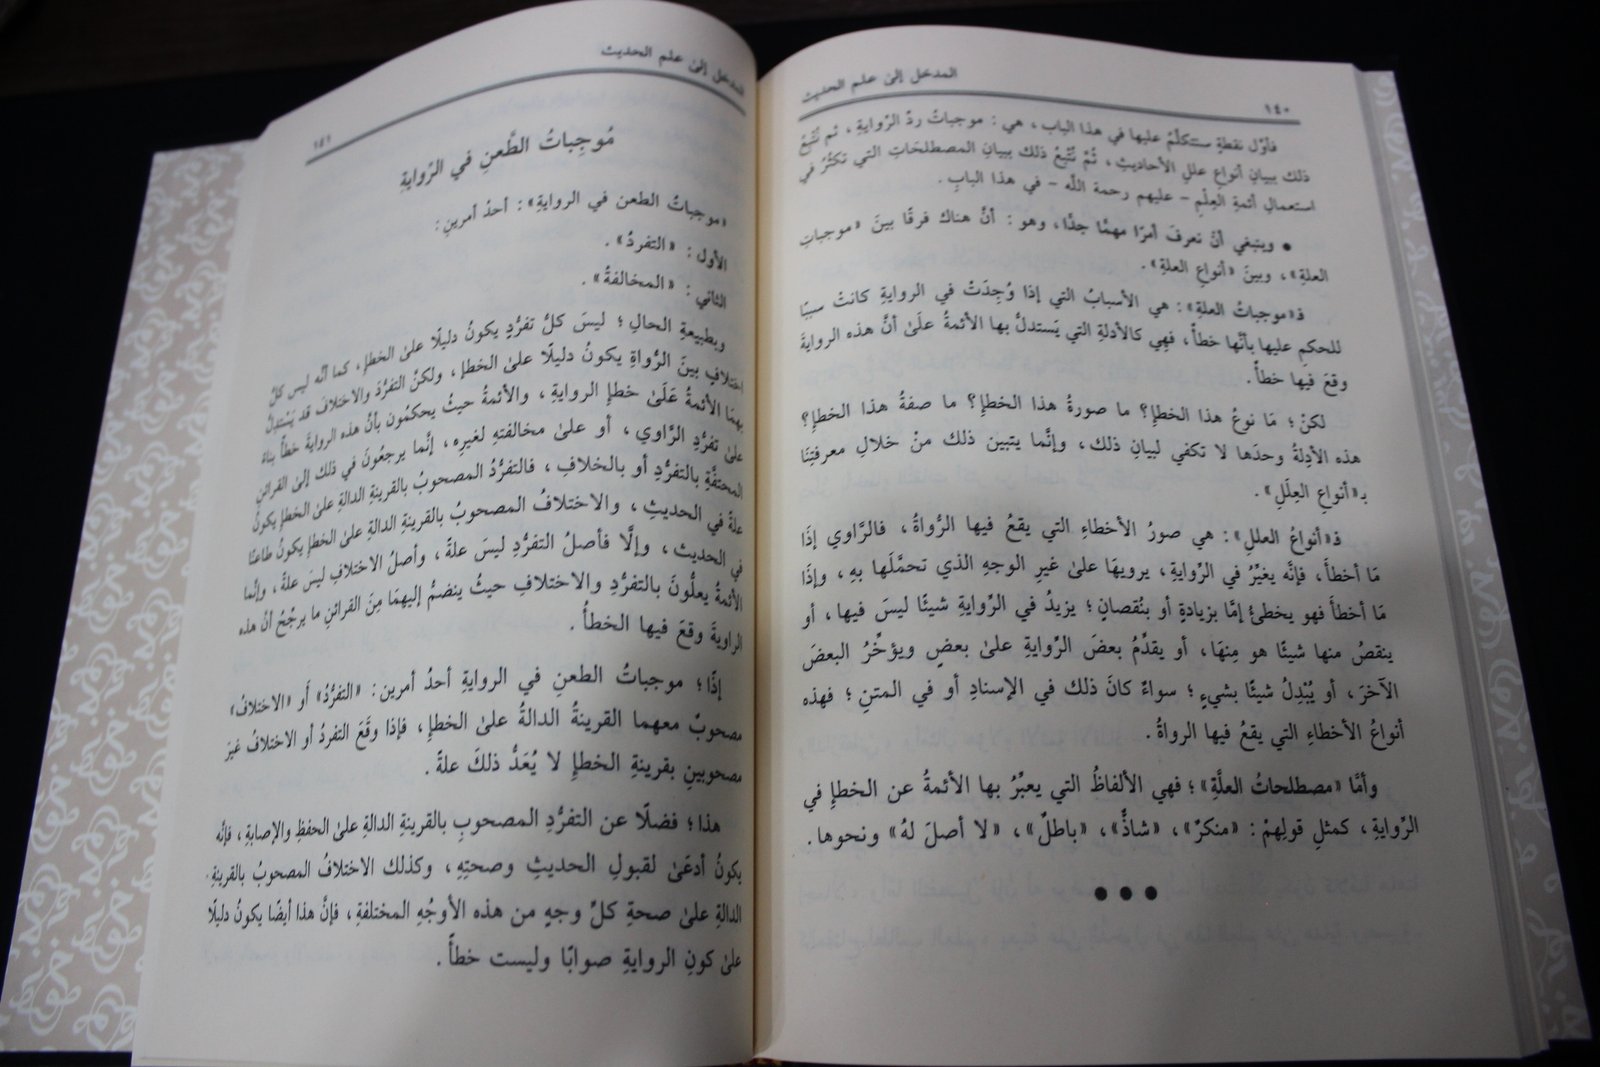 المدخل إلىٰ علم الحديث
١٤٠
فأوّل نقطةٍ سنتكلَّمُ عليها في هذا الباب، هي: موجباتُ ردِّ الرِّوايةِ، ثم نُتْبِعُ
ذلك ببيانِ أنواعِ عللِ الأحاديثِ، ثُمَّ نُتْبِعُ ذلك ببيانِ المصطلحَاتِ التي تكثُرُ في
استعمالِ أئمةِ العِلْمِ - عليهم رحمة اللَّه - في هذا البابِ.
● وينبغي أنْ نعرفَ أمرًا مهمًّا جدًّا، وهو: أنَّ هناك فرقًا بينَ «موجباتِ
العلةِ»، وبينَ «أنواعِ العلةِ».
فـ«موجباتُ العلةِ»: هي الأسبابُ التي إذا وُجِدَتْ في الروايةِ كانتْ سببًا
للحكمِ عليها بأنَّها خطأٌ، فهِي كالأدلةِ التي يَستدلُّ بها الأئمةُ علَىٰ أنَّ هذه الروايةَ
وقعَ فيها خطأٌ.
لكنْ؛ مَا نوعُ هذا الخطإِ؟ ما صورةُ هذا الخطإِ؟ ما صفةُ هذا الخطإِ؟
هذه الأدِلةُ وحدَها لا تكفي لبيانِ ذلك، وإنَّما يتبين ذلك منْ خلالِ معرفتِنَا
بـ«أنواعِ العِلَلِ».
فـ«أنواعُ العللِ»: هي صورُ الأخطاءِ التي يقعُ فيها الرُّواةُ، فالرَّاوي إذَا
مَا أخطأَ، فإنَّه يغيِّرُ في الرِّوايةِ، يرويهَا علىٰ غيرِ الوجهِ الذي تحمَّلَها بهِ، وإذَا
مَا أخطأَ فهو يخطئُ إمَّا بزيادةٍ أو بنُقصانٍ؛ يزيدُ في الرِّوايةِ شيئًا ليسَ فيها، أو
ينقصُ منها شيئًا هو مِنهَا، أو يقدِّمُ بعضَ الرِّوايةِ علىٰ بعضٍ ويؤخِّرُ البعضَ
الآخرَ، أو يُبْدِلُ شيئًا بشيءٍ؛ سواءٌ كانَ ذلك في الإسنادِ أو في المتنِ؛ فهذه
أنواعُ الأخطاءِ التي يقعُ فيها الرواةُ.
وأمَّا «مصطلحاتُ العلَّةِ»؛ فهي الألفاظُ التي يعبِّرُ بها الأئمةُ عن الخطإِ في
الرِّوايةِ، كمثلِ قولِهِمْ: «منكرٌ»، «شاذٌّ»، «باطلٌ»، «لا أصلَ لهُ» ونحوها.
● ● ●
المدخل إلىٰ علم الحديث
١٤١
مُوجِباتُ الطَّعنِ في الرِّوايةِ
«موجباتُ الطعن في الروايةِ»: أحدُ أمرينِ:
الأول: «التفردُ».
الثاني: «المخالفةُ».
وبطبيعةِ الحالِ؛ ليسَ كلُّ تفرُّدٍ يكونُ دليلًا علىٰ الخطإِ، كما أنَّه ليس كلُّ
اختلافٍ بينَ الرُّواةِ يكونُ دليلًا علىٰ الخطإ، ولكنْ التفرُّدَ والاختلافَ قد يَسْتدِلُّ
بهمَا الأئمةُ عَلَىٰ خطإِ الروايةِ، والأئمةُ حيثُ يحكمُون بأنَّ هذه الروايةَ خطأٌ بناءً
علىٰ تفرُّدِ الرَّاوي، أو علىٰ مخالفتهِ لغيرِه، إنَّما يرجعُونَ في ذلك إلىٰ القرائنِ
المحتفَّةِ بالتفرُّدِ أو بالخلافِ، فالتفرُّدُ المصحوبُ بالقرينةِ الدالةِ علىٰ الخطإِ يكونُ
علةً في الحديثِ، والاختلافُ المصحوبُ بالقرينةِ الدالةِ علىٰ الخطإِ يكونُ طاعنًا
في الحديث، وإلَّا فأصلُ التفرُّدِ ليسَ علةً، وأصلُ الاختلافِ ليسَ علةً، وإنَّما
الأئمةُ يعلُّونَ بالتفرُّدِ والاختلافِ حيثُ ينضمُّ إليهمَا مِنَ القرائنِ ما يرجِّحُ أنَّ هذه
الراويةَ وقعَ فيها الخطأُ.
إذًا؛ موجباتُ الطعنِ في الروايةِ أحدُ أمرين: «التفرُّدُ» أَو «الاختلافُ»
مصحوبٌ معهما القرينةُ الدالةُ علىٰ الخطإِ، فإذا وقَعَ التفردُ أو الاختلافُ غيرَ
مصحوبينِ بقرينةِ الخطإِ لا يُعَدُّ ذلكَ علةً.
هذا؛ فضلًا عن التفرُّدِ المصحوبِ بالقرينةِ الدالةِ علىٰ الحفظِ والإصابةِ، فإنَّه
يكونُ أدعَىٰ لقبولِ الحديثِ وصحتِهِ، وكذلك الاختلافُ المصحوبُ بالقرينةِ
الدالةِ علىٰ صحةِ كلِّ وجهٍ من هذه الأوجُهِ المختلفةِ، فإنَّ هذا أيضًا يكونُ دليلًا
علىٰ كونِ الروايةِ صوابًا وليست خطأً.